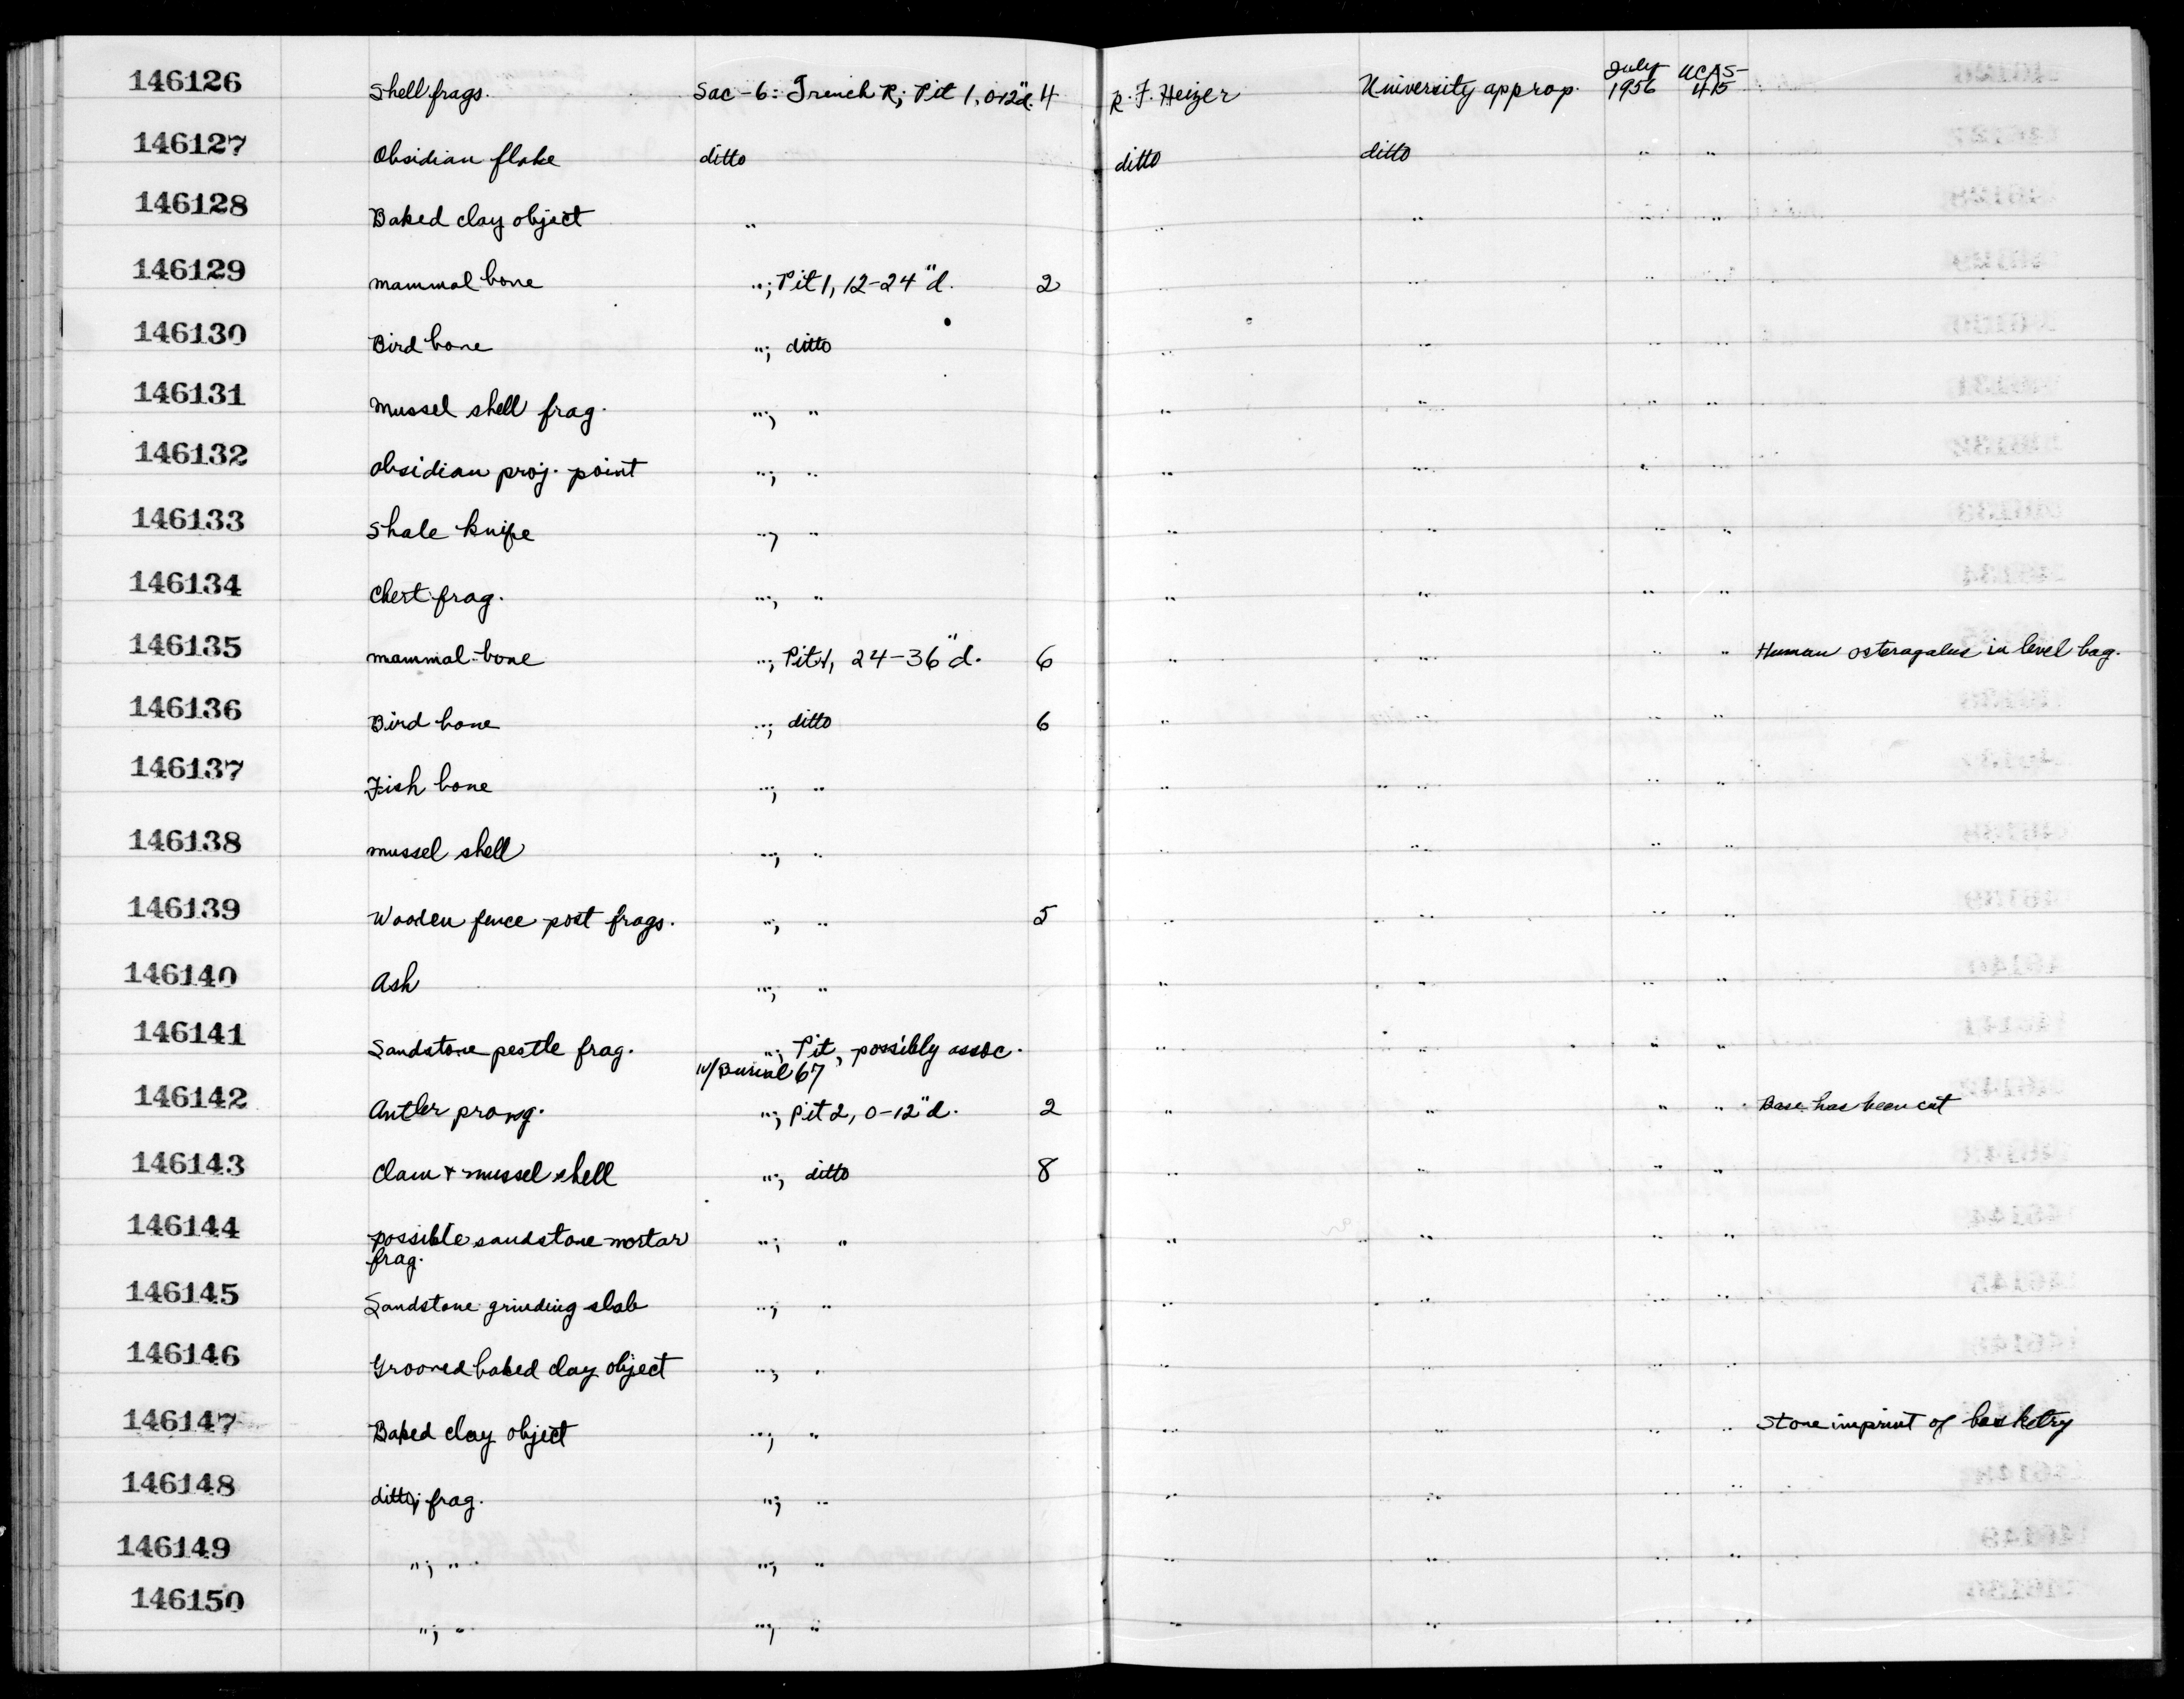 146126 Shell frags. Sac-6: Trench R; Pit 1, 0-12"d. 4 R. F. Heizer University approp. July 1956 UCAS-415
146127 Obsidian flake ditto ditto ditto " "
146128 Baked clay object " " " " "
146129 mammal bone "; Pit 1, 12-24"d. 2 " " " "
146130 Bird bone "; ditto " " " "
146131 Mussel shell frag. "; " " " " "
146132 obsidian proj. point "; " " " " "
146133 Shale knife "; " " " " "
146134 Chert frag. "; " " " " "
146135 mammal bone "; Pit 1, 24-36"d. 6 " " " " Human osteragalus in level bag.
146136 Bird bone "; ditto 6 " " " "
146137 Fish bone "; " " " " "
146138 mussel shell "; " " " " "
146139 Wooden fence post frags. "; " 5 " " " "
146140 Ash "; " " " " "
146141 Sandstone pestle frag. "; Pit, possibly assoc. " " " "
w/Burial 67
146142 Antler prong. "; Pit 2, 0-12"d. 2 " " " " Base has been cut
146143 Clam + mussel shell "; ditto 8 " " " "
146144 possible sandstone mortar "; " " " " "
frag.
146145 Sandstone grinding slab "; " " " " "
146146 Grooved baked clay object "; " " " " "
146147 Baked clay object "; " " " " " Stone imprint of basketry
146148 ditto; frag. "; " " " " "
146149 "; " "; " " " " "
146150 "; " "; " " " " "